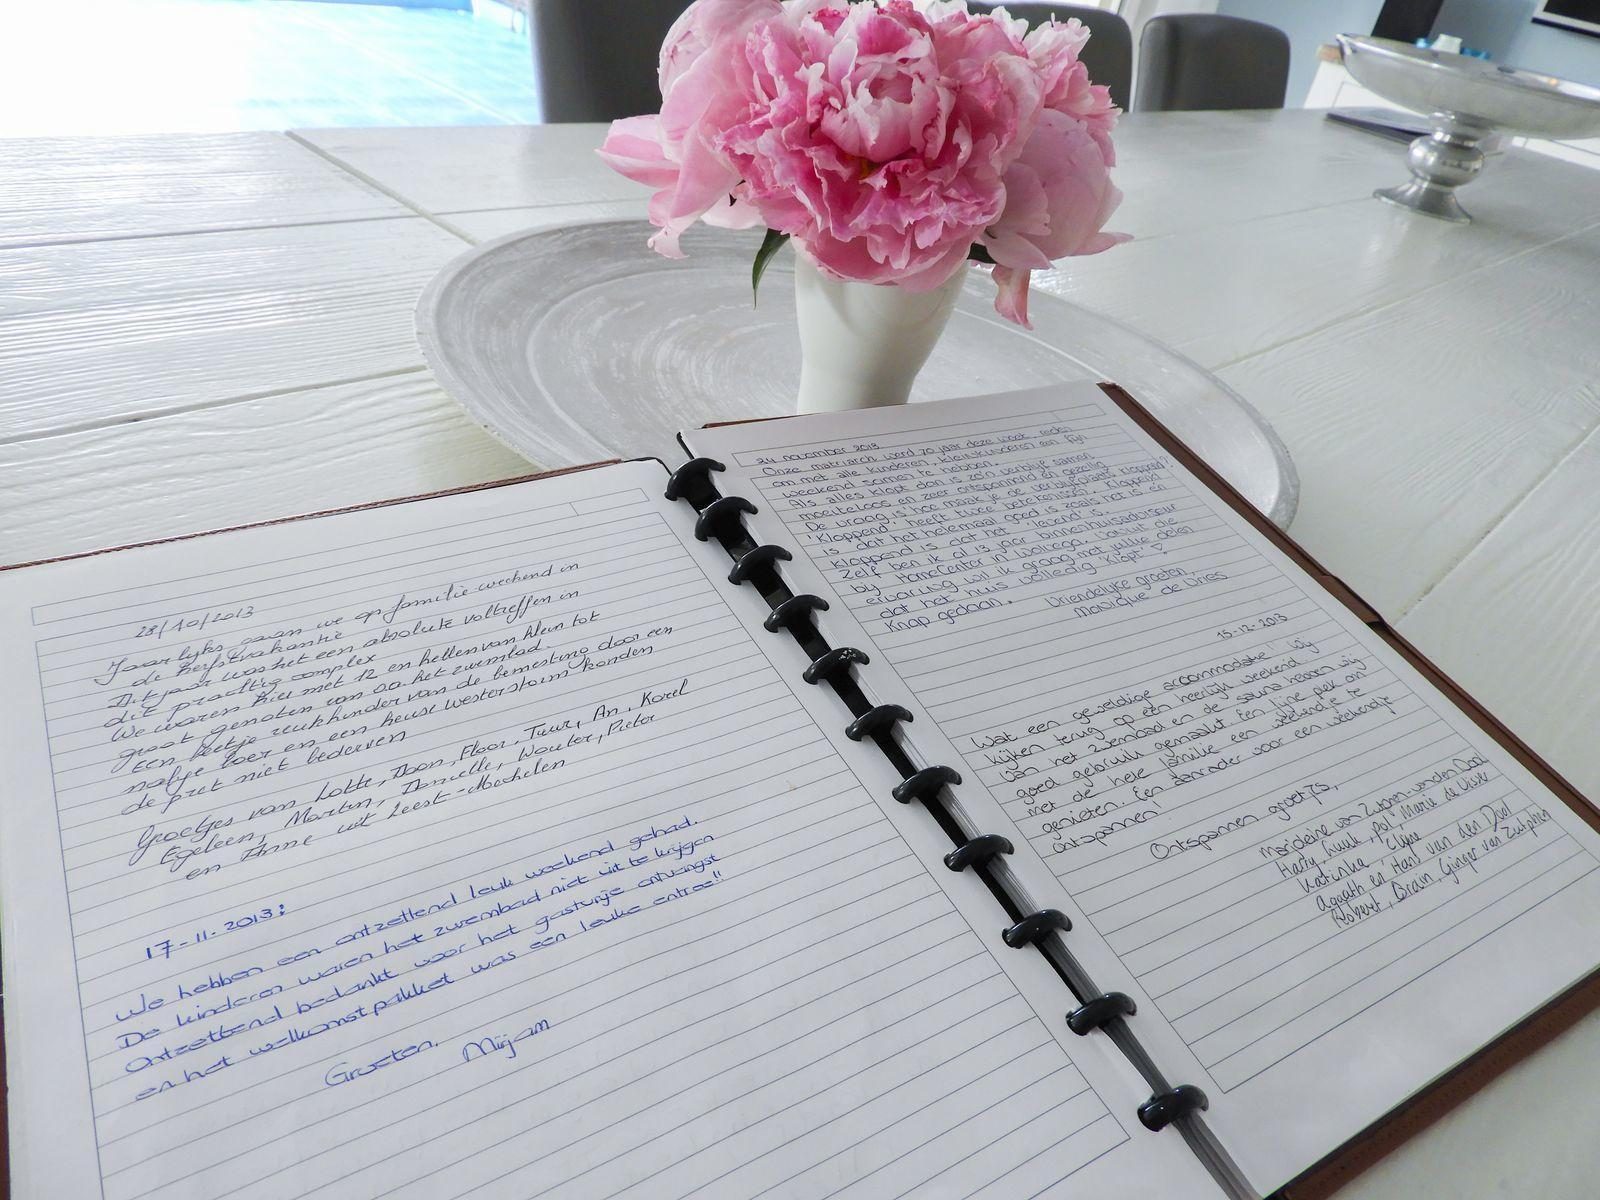 28/10/2013
Jaarlijks gaan we op familie-weekend in
de herfstvakantie
Dit jaar was het een absolute voltreffer in
dit prachtig complex
We waren hier met 12 en hebben van klein tot
groot genoten van o.a. het zwembad.
Een beetje reukhinder van de bemesting door een
nabije boer en een heuse westerstorm konden
de pret niet bederven
Groetjes van Lotte, Toon, Floor, Tuur, An, Karel
Egeleen, Martin, Annelle, Wouter, Pieter
en Anne uit Leest-Mechelen
17-11-2013:
We hebben een ontzettend leuk weekend gehad.
De kinderen waren het zwembad niet uit te krijgen
Ontzettend bedankt voor het gastvrije ontvangst
en het welkomstpakket was een leuke entree!!
Groeten,
Mirjam
24 november 2013
Onze matriarch werd 70 jaar deze week, reden
om met alle kinderen, kleinkinderen een fijn
weekend samen te hebben.
Als alles klopt dan is zo'n verblijf samen
moeiteloos en zeer ontspannend en gezellig
De vraag is hoe maak je de verblijfplaats kloppend?
'Kloppend' heeft twee betekenissen. Kloppend
is dat het helemaal goed is zoals het is en
kloppend is dat het 'levend' is.
Zelf ben ik al 13 jaar binnenhuisadviseur
bij HomeCenter in Wolvega. Vanuit die
ervaring wil ik graag met jullie delen
dat het huis volledig "klopt" ♡.
Knap gedaan.
Vriendelijke groeten,
Monique de Vries
15-12-2013
Wat een geweldige accommodatie. Wij
kijken terug op een heerlijk weekend
van het zwembad en de sauna hebben wij
goed gebruik gemaakt. Een fijne plek om
met de hele familie een weekendje te
genieten. Een aanrader voor een weekendje
ontspannen!
Ontspannen groetjes,
Marjoleine van Zutphen-van den Dool
Harry, Luuk, Pol, Marie de Visser
Katinka, Eline
Agaath en Hans van den Dool
Robert, Brain, Ginger van Zutphen